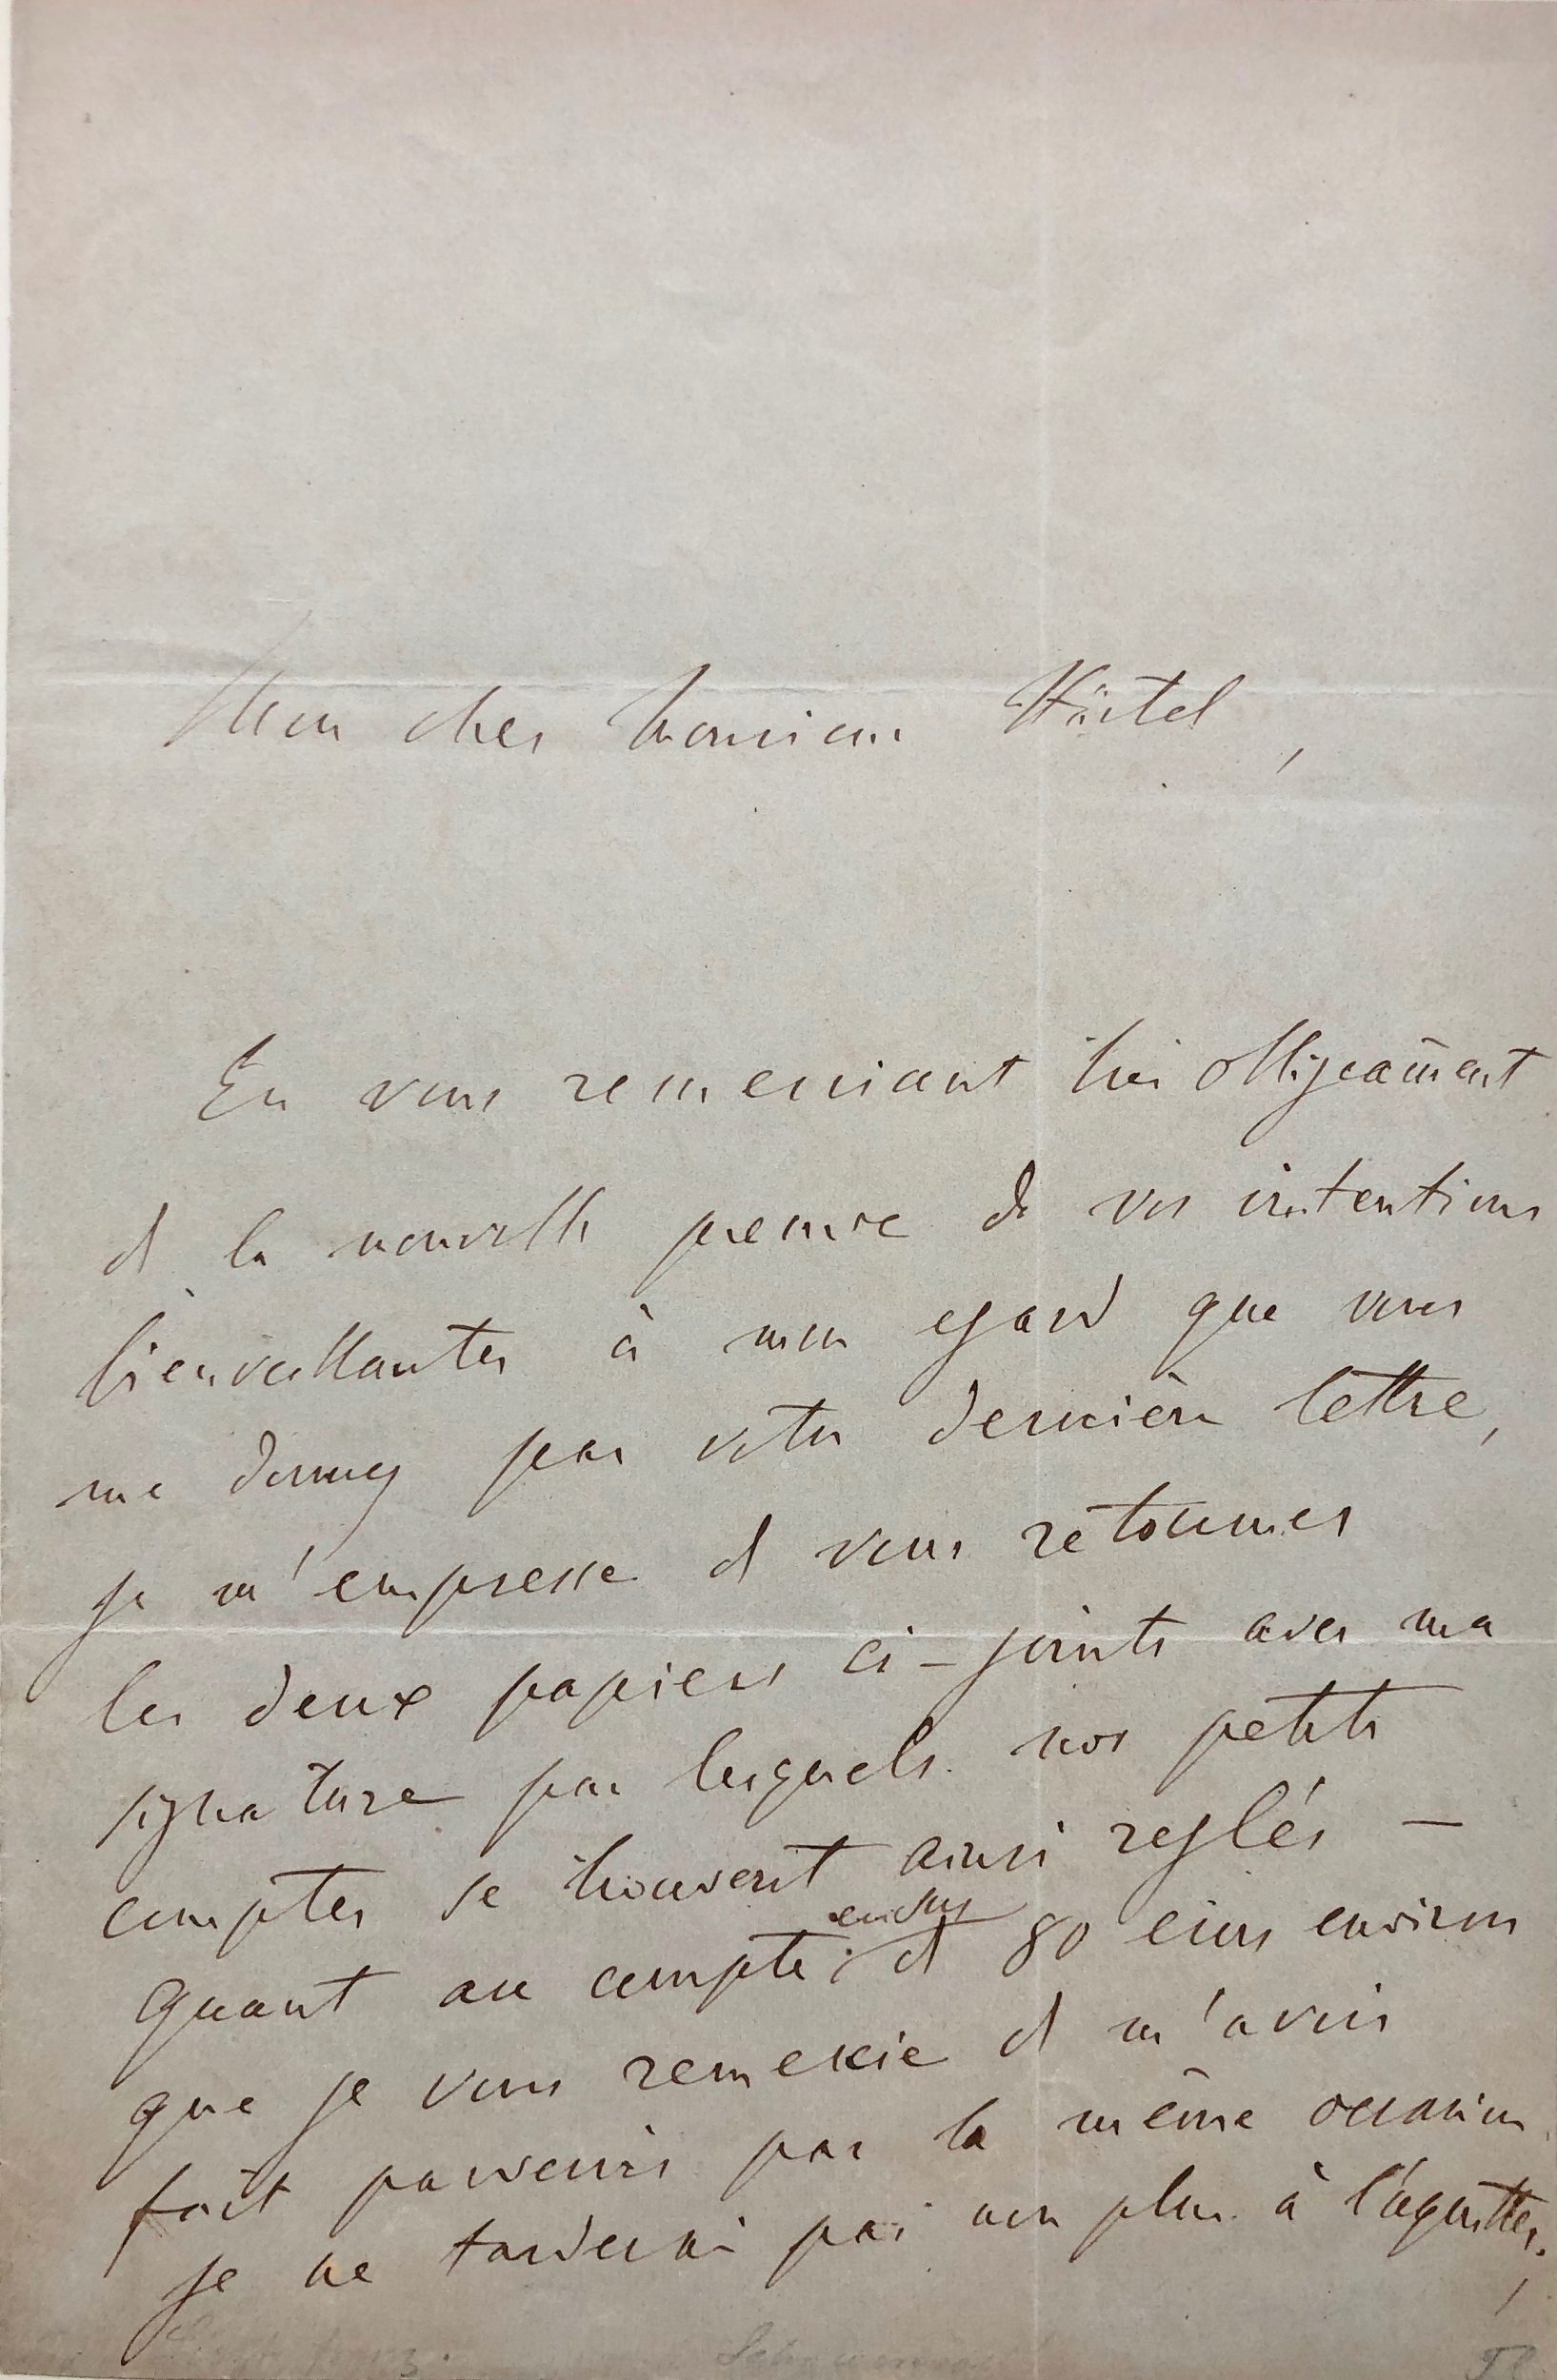 Mon cher Monsieur Härtel,
En vous remerciant très obligeam̄ent
de la nouvelle preuve de vos intentions
bienveillantes à mon egard que vous
me donnez par votre dernière lettre,
je m'empresse de vous retourner
les deux papiers ci-joints avec ma
signature par lesquels nos petits
comptes se trouvent ainsi reglés —
Quant au compte de 80 écus environ
que je vous remercie de m'avoir
fait parvenir par la même occasion
je ne tarderai pas non plus à l'aquitter,